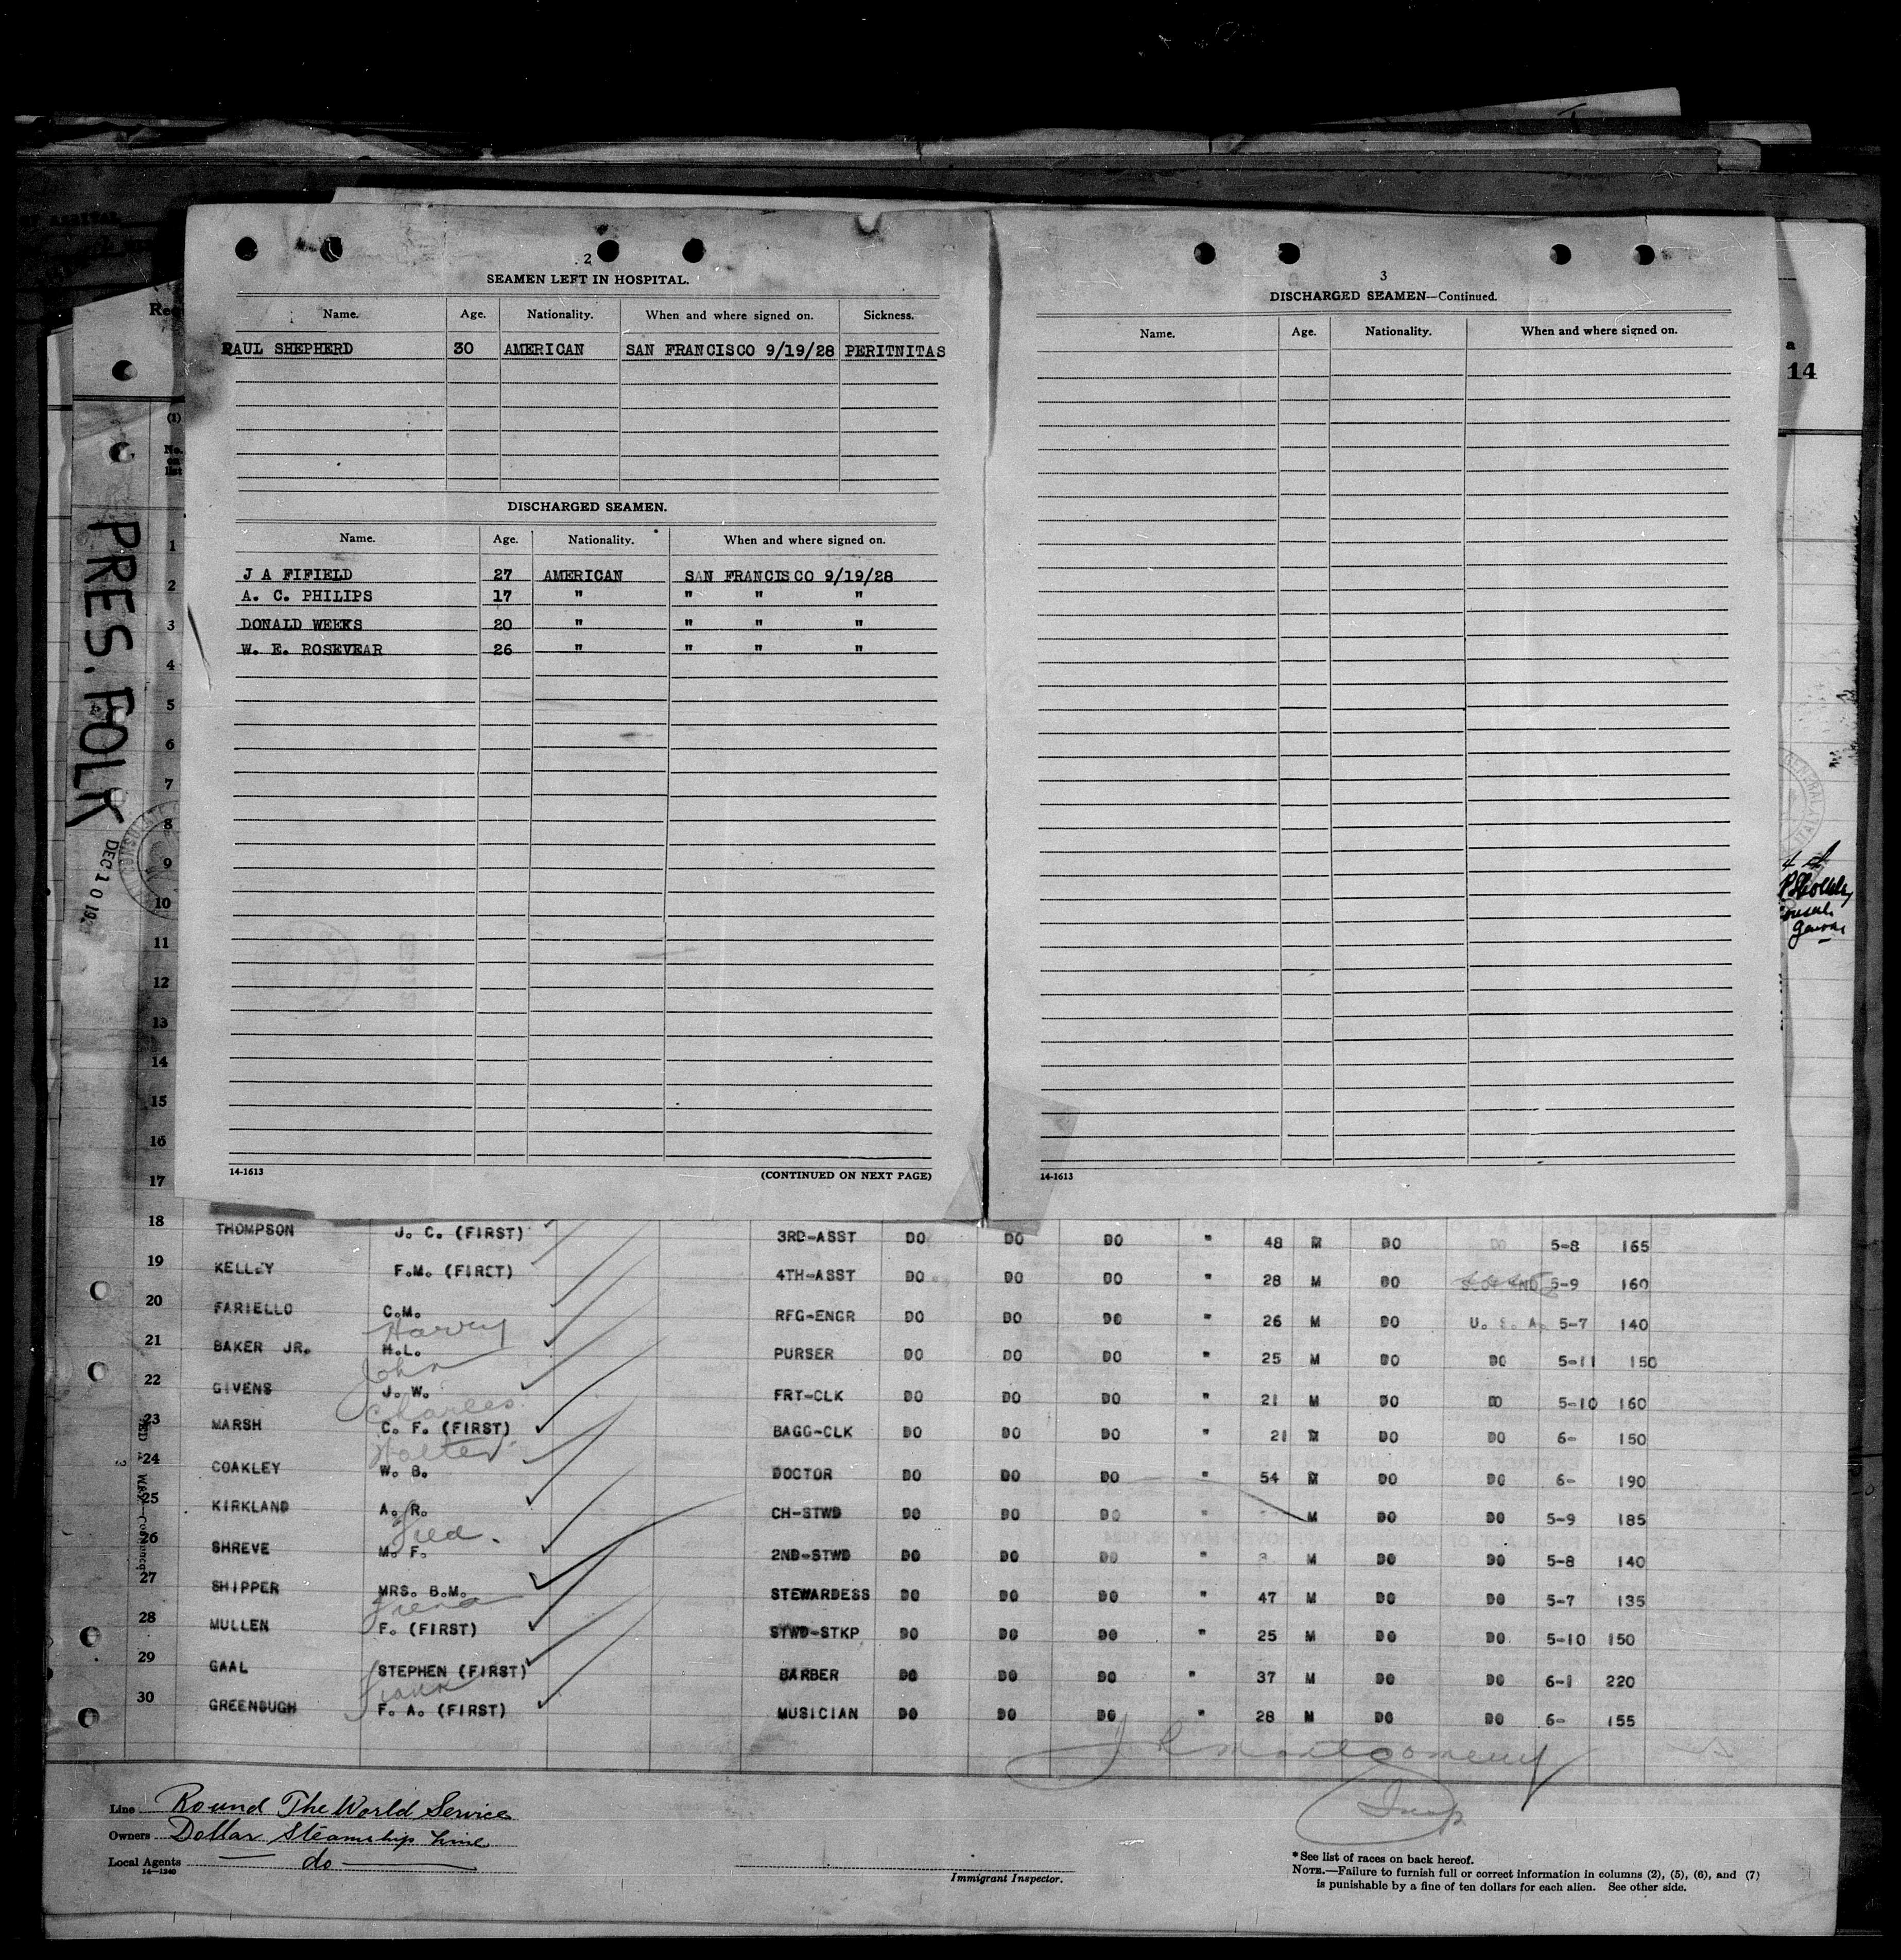 2
SEAMEN LEFT IN HOSPITAL.
Name. Age. Nationality. When and where signed on. Sickness.
PAUL SHEPHERD 30 AMERICAN SAN FRANCISCO 9/19/28 PERITNITAS
DISCHARGED SEAMEN.
Name. Age. Nationality. When and where signed on.
J A FIFIELD 27 AMERICAN SAN FRANCISCO 9/19/28
A. C. PHILIPS 17 " " " "
DONALD WEEKS 20 " " " "
W. E. ROSEVEAR 26 " " " "
14-1613 (CONTINUED ON NEXT PAGE)
3
DISCHARGED SEAMEN—Continued.
Name. Age. Nationality. When and where signed on.
14-1613
14
(1)
No. on list
PRES. FOLK
DEC 10
1
2
3
4
5
6
7
8
9
10
11
12
13
14
15
16
17
18 THOMPSON J. C. (FIRST) 3RD-ASST DO DO DO " 48 M DO DO 5-8 165
19 KELLEY F.M. (FIRCT) 4TH-ASST DO DO DO " 28 M DO 5-9 160
20 FARIELLO C.M. RFG-ENGR DO DO DO " 26 M DO U. S. A. 5-7 140
Harvey
21 BAKER JR. H.L. PURSER DO DO DO " 25 M DO DO 5-11 150
John
22 GIVENS J. W. FRT-CLK DO DO DO " 21 M DO DO 5-10 160
Charles
23 MARSH C. F. (FIRST) BAGG-CLK DO DO DO " 21 M DO DO 6- 150
Walter
24 COAKLEY W. B. DOCTOR DO DO DO " 54 M DO DO 6- 190
25 KIRKLAND A. R. CH-STWD DO DO DO " M DO DO 5-9 185
26 SHREVE M. F. 2ND-STWD DO DO DO " M DO DO 5-8 140
27 SHIPPER MRS. B.M. STEWARDESS DO DO DO " 47 M DO DO 5-7 135
28 MULLEN F. (FIRST) STWD-STKP DO DO DO " 25 M DO DO 5-10 150
29 GAAL STEPHEN (FIRST) BARBER DO DO DO " 37 M DO DO 6-1 220
Frank
30 GREENBUGH F. A. (FIRST) MUSICIAN DO DO DO " 28 M DO DO 6- 155
J R Montgomery
Insp
Line Round The World Service
Owners Dollar Steamship Line
Local Agents do
14-1240
Immigrant Inspector.
*See list of races on back hereof.
NOTE.—Failure to furnish full or correct information in columns (2), (5), (6), and (7)
is punishable by a fine of ten dollars for each alien. See other side.